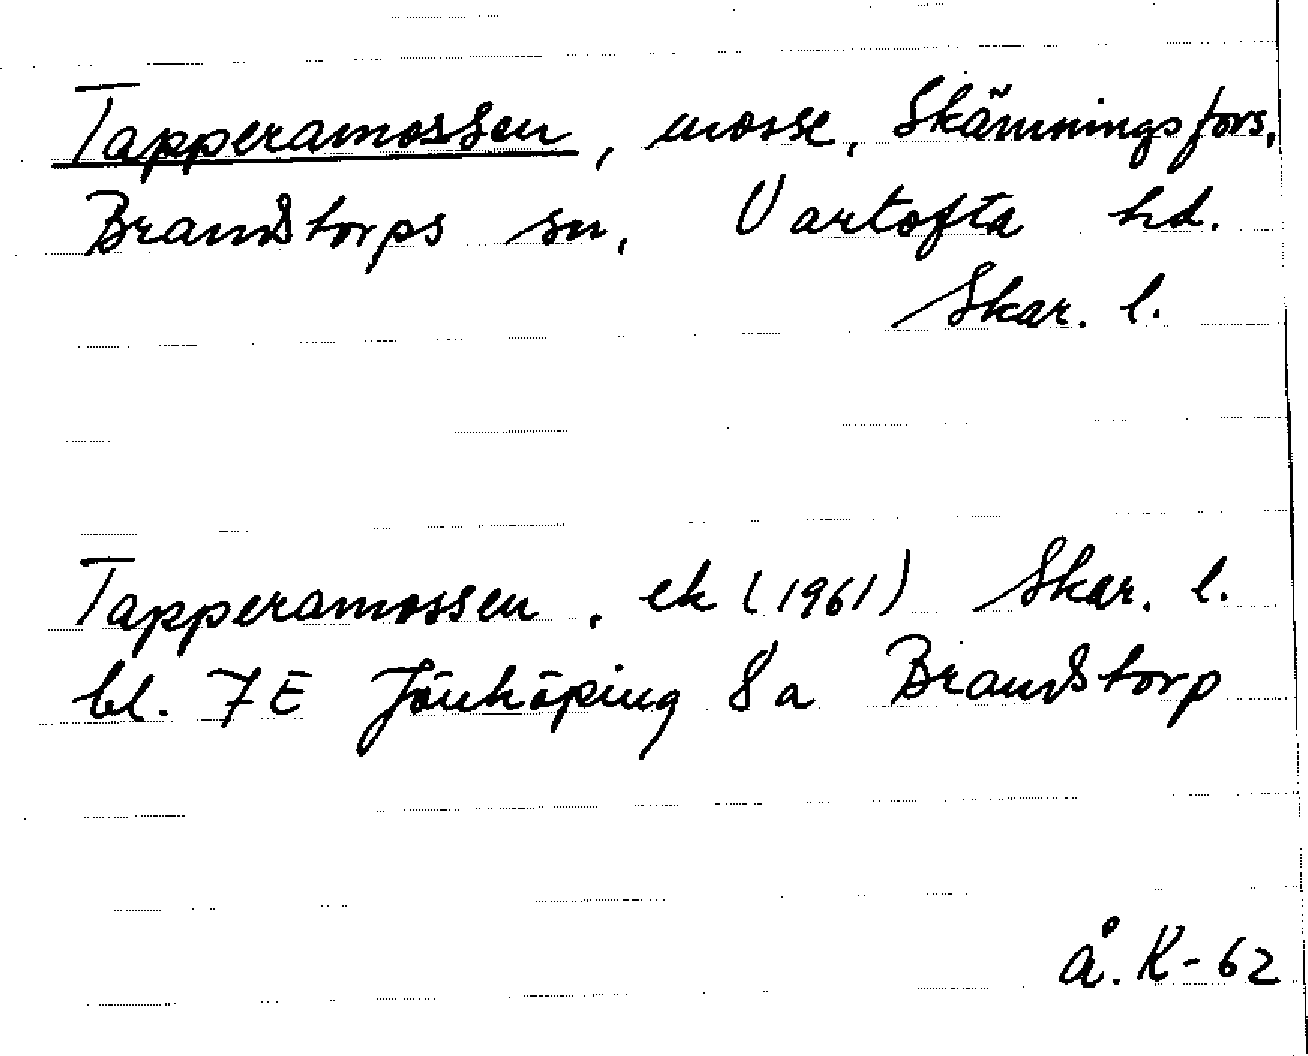 Tapperamossen, mosse, Skämningsfors,
Brandstorps sn, Vartofta hd.
Skar. l.
Tapperamossen, ek (1961) Skar. l.
bl. 7E Jönköping 8a Brandstorp
å. K-62